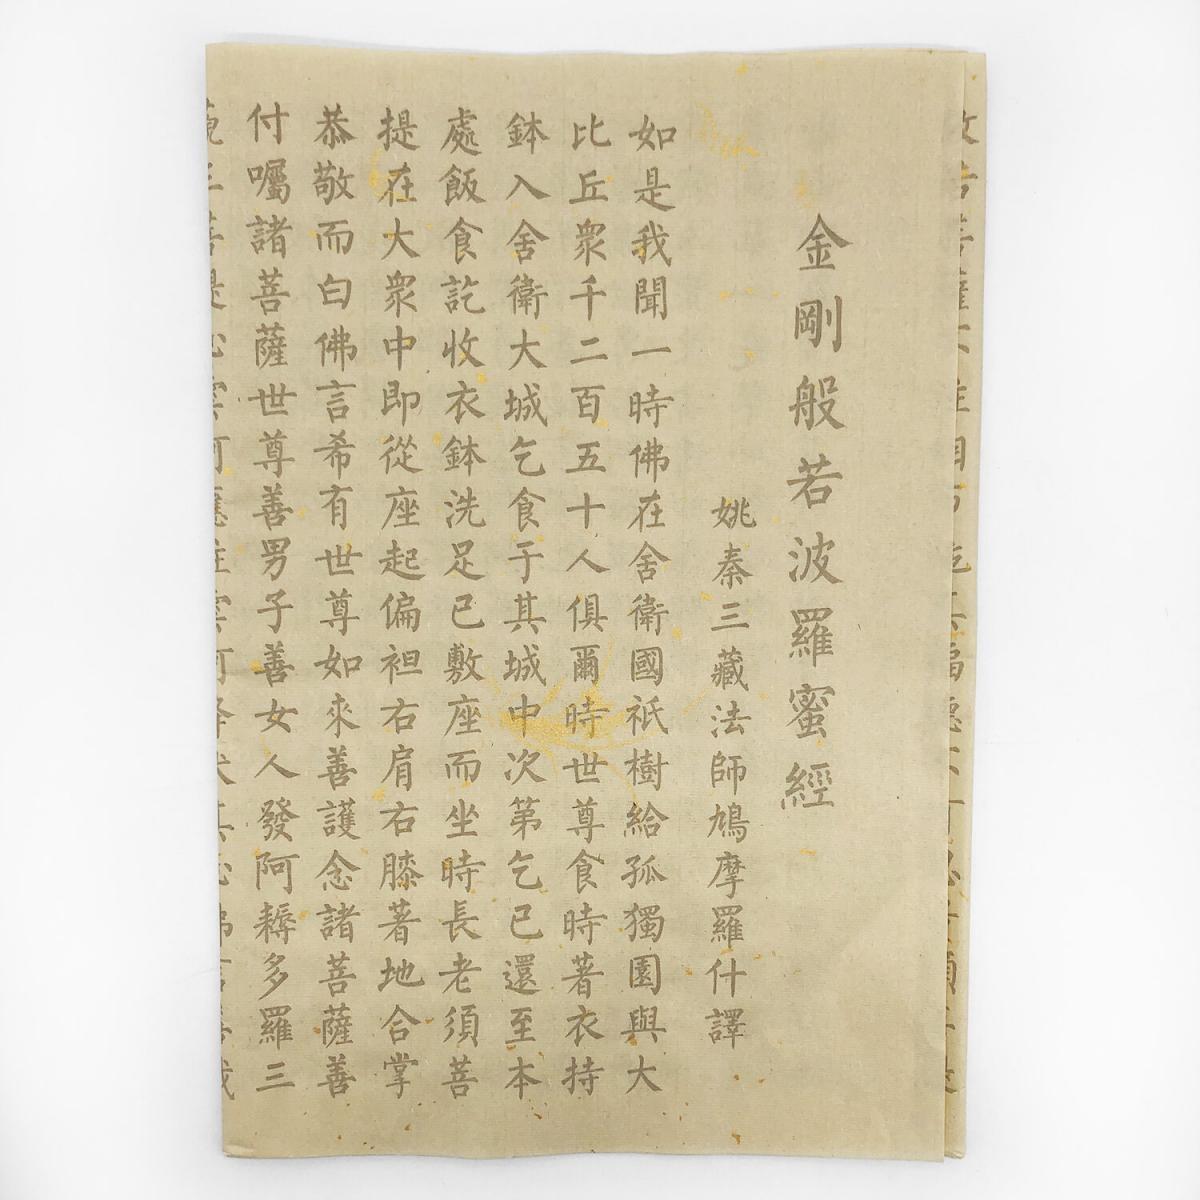 金剛般若波羅蜜經
姚秦三藏法師鳩摩羅什譯
如是我聞一時佛在舍衛國祇樹給孤獨園與大
比丘衆千二百五十人俱爾時世尊食時著衣持
鉢入舍衛大城乞食于其城中次第乞已還至本
處飯食訖收衣鉢洗足已敷座而坐時長老須菩
提在大衆中即從座起偏袒右肩右膝著地合掌
恭敬而白佛言希有世尊如來善護念諸菩薩善
付囑諸菩薩世尊善男子善女人發阿耨多羅三